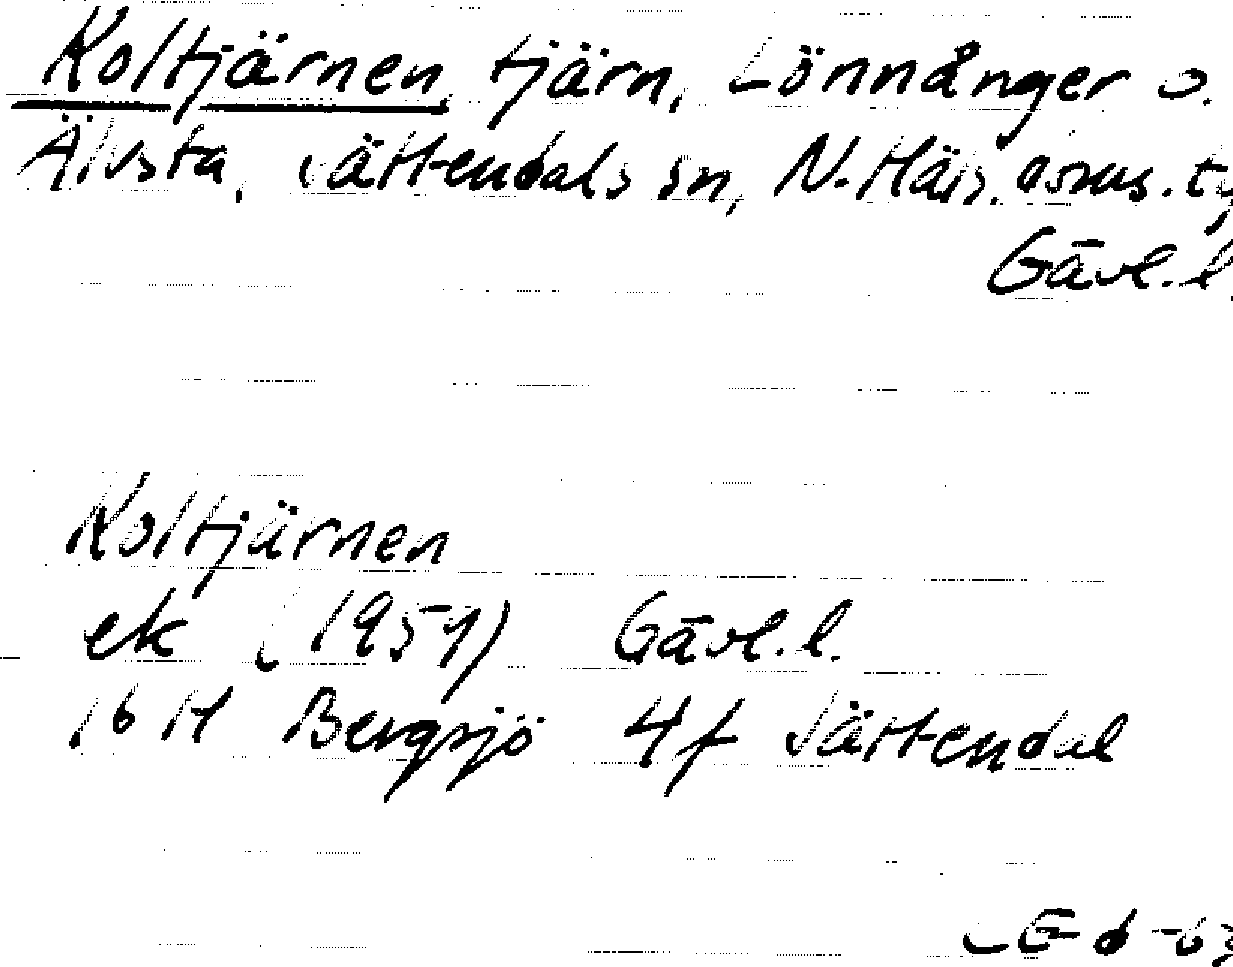 Koltjärnen, tjärn, Lönnånger o.
Älvsta, Jättendals sn, N. Häls.
Gävl.l.
Koltjärnen
ek (1959) Gävl.l.
16 H Bergsjö 4f Jättendal